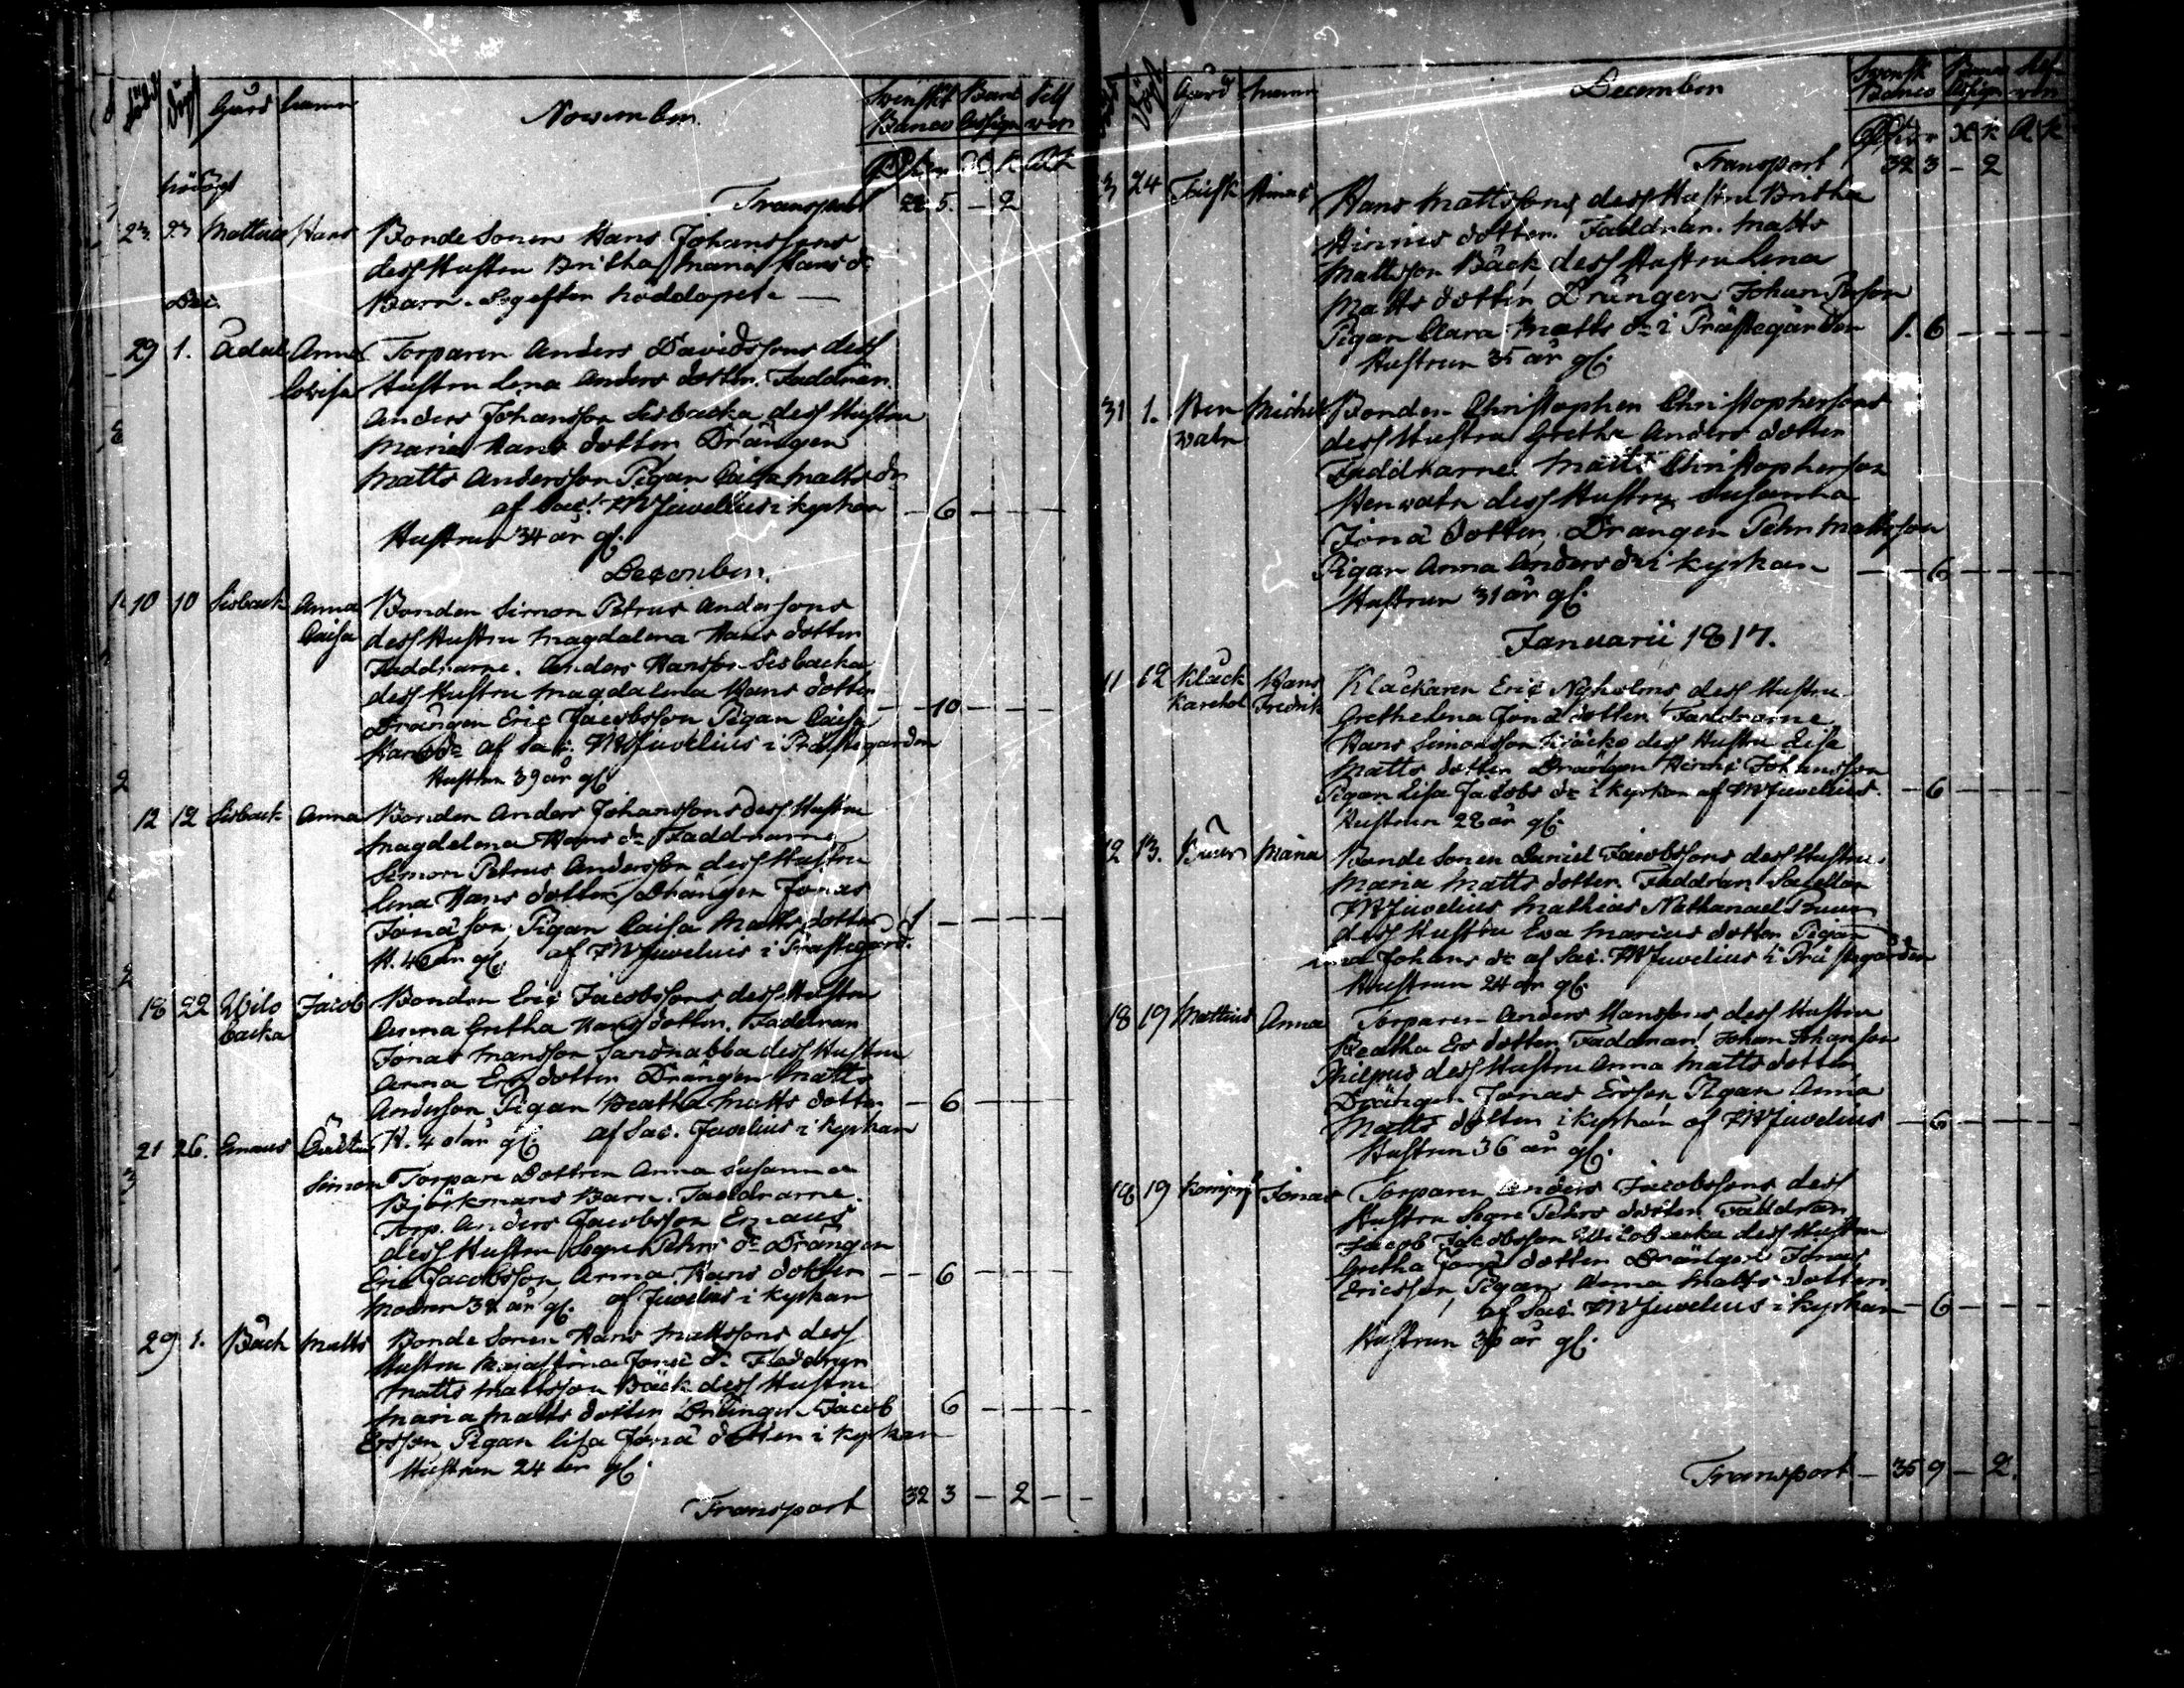 Född Döpt Gård namn Novemben Svenskt Banco Banc Assign Silf wer
nöddöpt
Transport 22 5. - 2
23. 23 Mattus Hans Bonde Sonen Hans Johanssons
dess Hustru Britha Maria Hans dr
Dec. Barn.
29 1. Ådal Anna Torparen Anders Davidssons dess
Lovisa Hustru Lena Anders dotter. Faddran.
Anders Johansson Sisbacka dess Hustru
Maria Hans dotter Drängen
Matts Andersson Pigan Caisa Matts dr
af Sac: FW Juvelius i kyrkan - 6 - - -
Hustrun 34 år gl.
Decemben.
10 10 Sisback Anna Bonden Simon Petrus Anderssons
Caisa dess Hustru Magdalena Hans dotter
Faddrarne. Anders Hansson Sisbacka
dess Hustru Magdalena Hans dotter
Drängen Eric Jacobsson Pigan Caisa - 10 - - -
Hans dr af Sac: FW Juvelius i Prästegården
Hustrun 39 år gl.
12 12 Sisback Anna Bonden Anders Johanssons dess Hustru
Magdelena Hans dr Faddrarne
Simon Petrus Andersson dess Hustru
Lena Hans dotter, Drängen Jonas
Jona son, Pigan Caisa Matts dotter 1 - - - -
H. 40 år gl. af FW Juvelius i Prästegård.
18 22 Wilo Jacob Bonden Eric Jacobssons dess Hustru
backa Anna Gretha Hans dotter. Faddran
Jonas Mansson Sandnabba dess Hustru
Anna Ers dotter Drängen Matts
Andersson Pigan Beatha Matts dotter - 6 - - -
H. 40 år gl. af Sac. Juvelius i kyrkan
21 26. Emaus
Simon Torpare Dottren Anna Susanna
Björkmans Barn. Faddrarne.
Torp. Anders Jacobsson Emaus
dess Hustru Segre Pehrs dr Drängen
Eric Jacobsson, Anna Hans dotter - - 6 - - -
Modren 38 år gl. af Juvelius i kyrkan
29 1. Bäck Matts Bonde Sonen Hans Mattssons dess
Hustru Majastina Jona dr Faddran
Matts Mattsson Bäck dess Hustru
Maria Matts dotter Drängen Jacob 6 - - - -
Ersson, Pigan Lisa Jona dotter i kyrkan
Hustrun 24 år gl.
Transport 32 3 - 2 - -
Döpt Gård namn Decemben Svensk Banco Banco Assign Silf wer
Transport 32 3 - 2
24 Hans Mattssons dess Hustru Britha
Hinrics dotter. Faddran. Matts
Mattsson Bäck dess Hustru Lena
Matts dotter, Drängen Johan
Pigan Clara Matts dr i Prästegården 1. 6 - - - -
Hustrun 35 år gl.
31 1. Sten Michel Bonden Christopher Christophersons
watn dess Hustru Gretha Anders dotter
Faddrarne. Matts Christopherson
Stenwatn dess Hustru Susanna
Jona dotter, Drängen Pehr Mattsson
Pigan Anna Anders dr i kyrkan - - 6 - - -
Hustrun 31 år gl.
Januarii 1817.
11 12 Klåck Hans Klåckaren Eric Nyholms dess Hustru
Karehol Fredrik Grethelena Jona dotter. Faddrarne
Hans Simonsson dess Hustru Lisa
Matts dotter Drängen Hinric Johansson
Pigan Lisa Jacobs dr i kyrkan af FW Juvelius. - 6 - - - -
Hustrun 28 år gl.
12 13. Bruun Maria Bonde Sonen Daniel Jacobssons dess Hustru
Maria Matts dotter. Faddran: Sacellan
FW Juvelius Mathias Nathanael Bruun
dess Hustru Eva Marcus dotter Pigan
Johans dr af Sac. FW Juvelius i Prästegården
Hustrun 24 år gl.
18 19 Mattus Anna Torparen Anders Hanssons dess Hustru
Beatha Ers dotter, Faddran: Johan Johansson
Philpus dess Hustru Anna Matts dotter
Drängen Jonas Ersson Pigan Anna
Matts dotter i kyrkan af FW Juvelius - 6 - - -
Hustrun 36 år gl.
18 19 Jonas Torparen Anders Jacobssons dess
Hustru Segre Pehrs dotter Faddran
Jacob Jacobsson Wilobacka dess Hustru
Gretha Jona dotter Drängen Jonas
Ericsson, Pigan Anna Matts dotter
af Sac. FW Juvelius i kyrkan - 6 - - -
Hustrun 36 år gl.
Transport - 35 9 - 2.